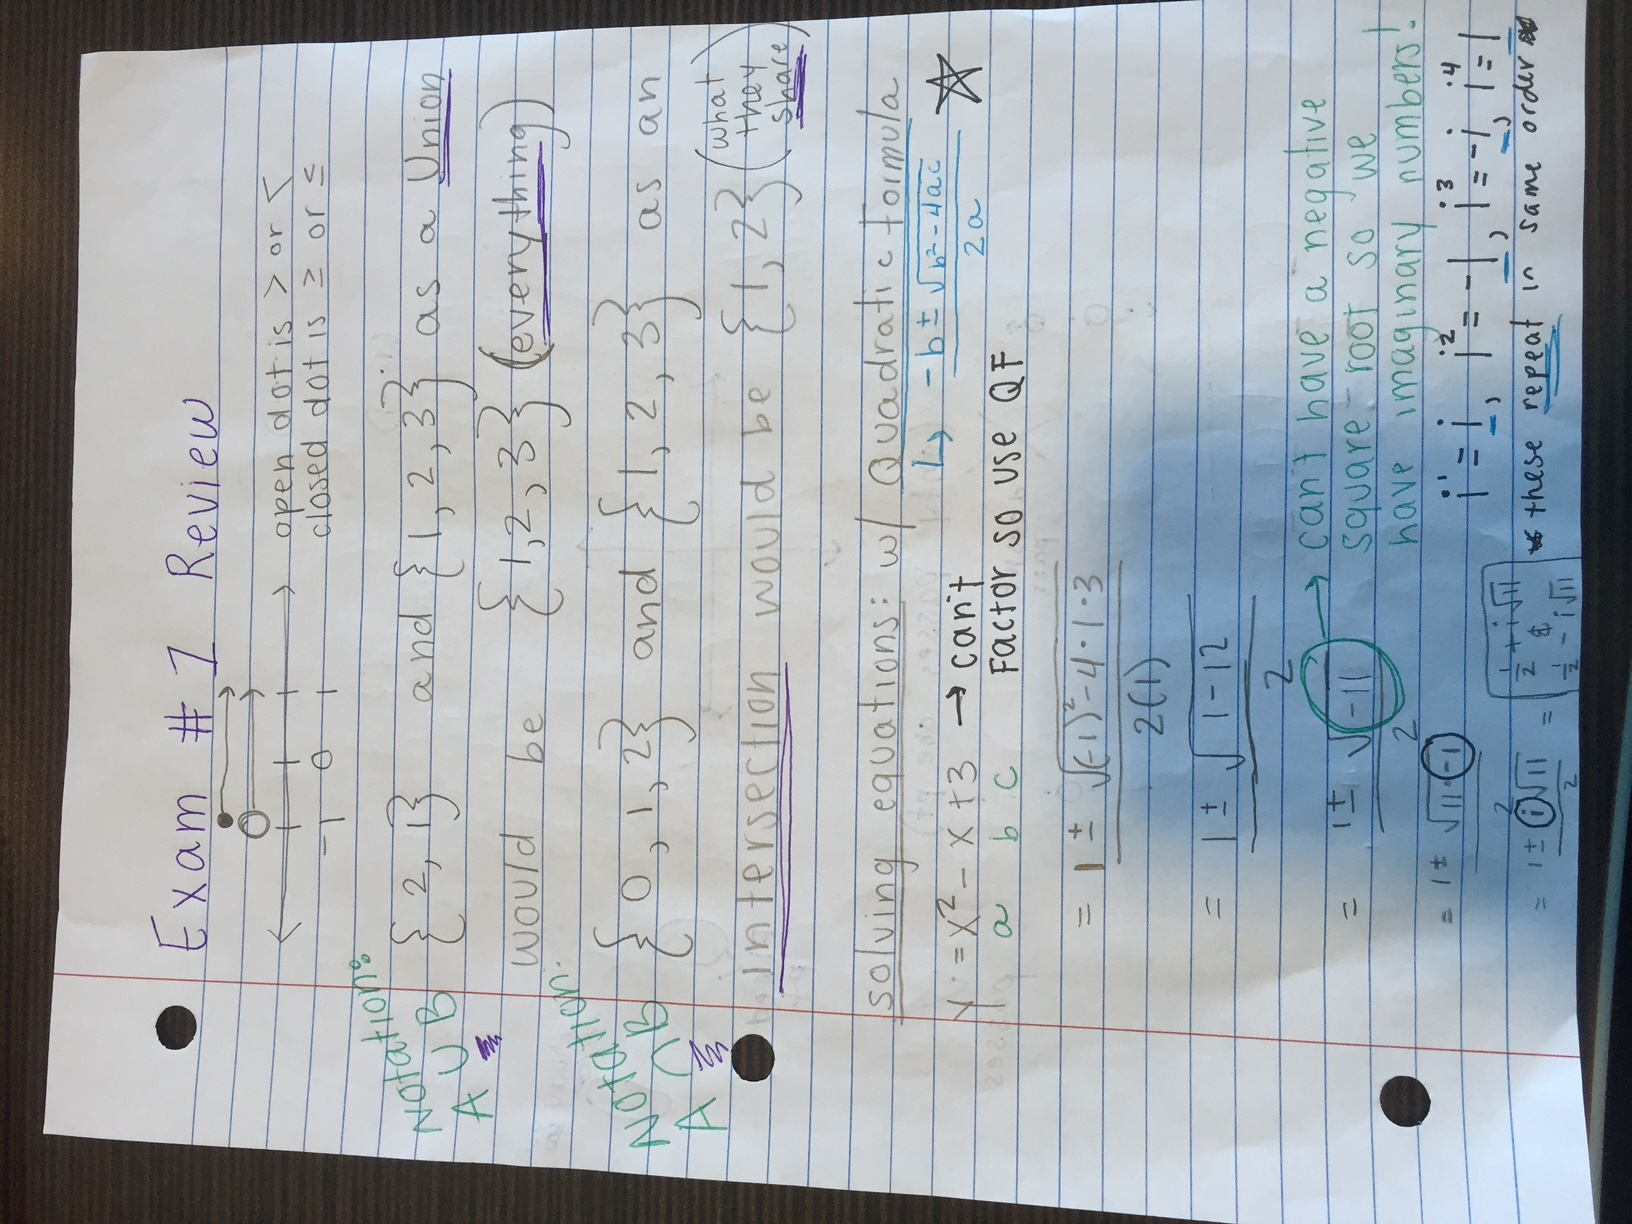 Exam #1 Review
-1 0 1
open dot is > or <
closed dot is ≥ or ≤
Notation:
A ∪ B
{2, 1} and {1, 2, 3} as a Union
would be {1, 2, 3} (everything)
Notation:
A ∩ B
{0, 1, 2} and {1, 2, 3} as an
Intersection would be {1, 2} (what they share)
solving equations: w/ Quadratic formula
↳ -b ± √b² - 4ac / 2a ☆
y = x² - x + 3 → can't
a b c Factor so use QF
= 1 ± √(-1)² - 4 · 1 · 3 / 2(1)
= 1 ± √1 - 12 / 2
= 1 ± √-11 / 2 → can't have a negative
square-root so we
have imaginary numbers!
= 1 ± √11 · -1 / 2
i¹ = i, i² = -1, i³ = -i, i⁴ = 1
= 1 ± i√11 / 2 = 1/2 + i√11 & 1/2 - i√11
* these repeat in same order *